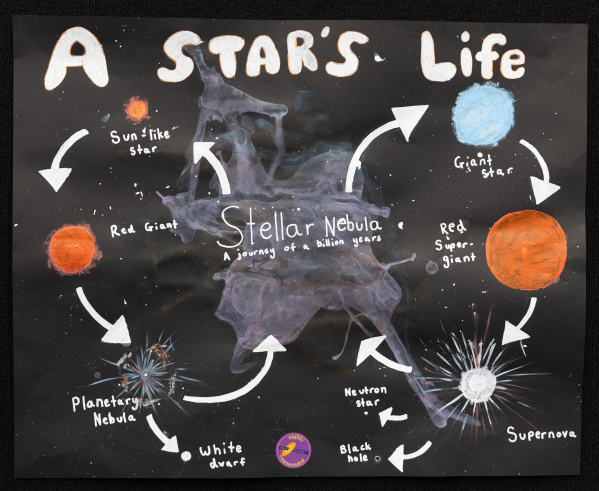 A STAR'S Life
Sun-like
star
Giant
star
Stellar Nebula
A journey of a billion years
Red Giant
Red
Super-
giant
Planetary
Nebula
Neutron
star
Supernova
White
dwarf
Black
hole